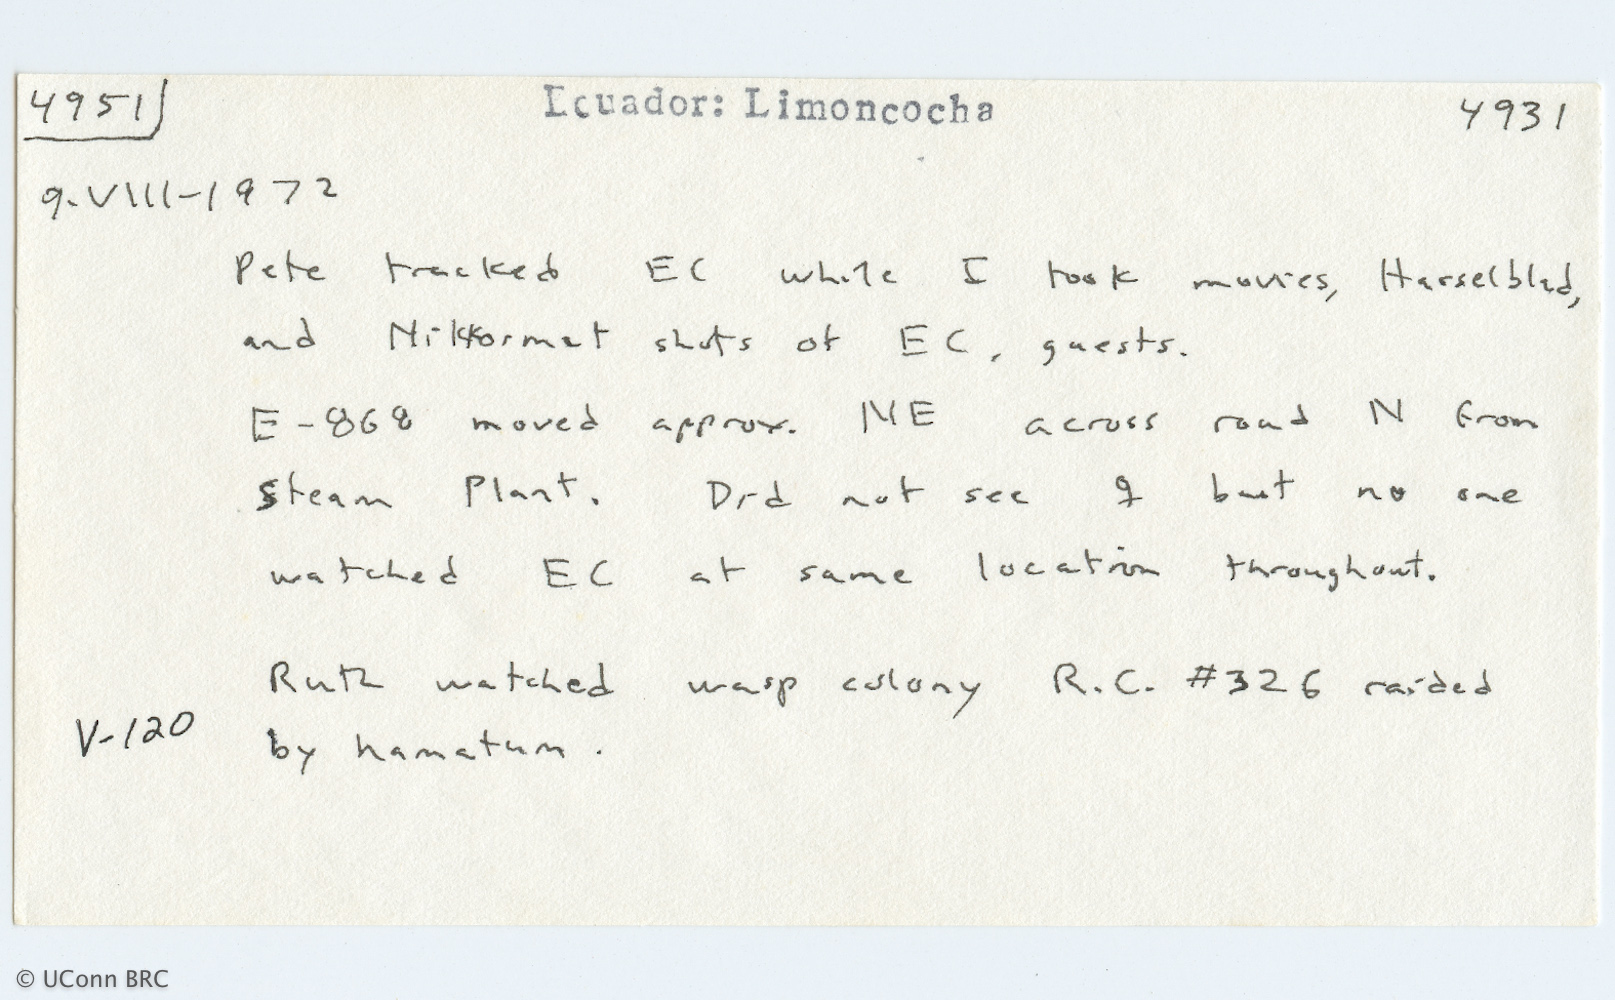 4951 Ecuador: Limoncocha 4931
9-VIII-1972
Pete tracked EC while I took movies, Hasselblad,
and Nikkormat shots of EC, guests.
E-868 moved approx. NE across road N from
Steam Plant. Did not see ♀ but no one
watched EC at same location throughout.
Ruth watched wasp colony R.C. #326 raided
V-120 by hamatum.
© UConn BRC